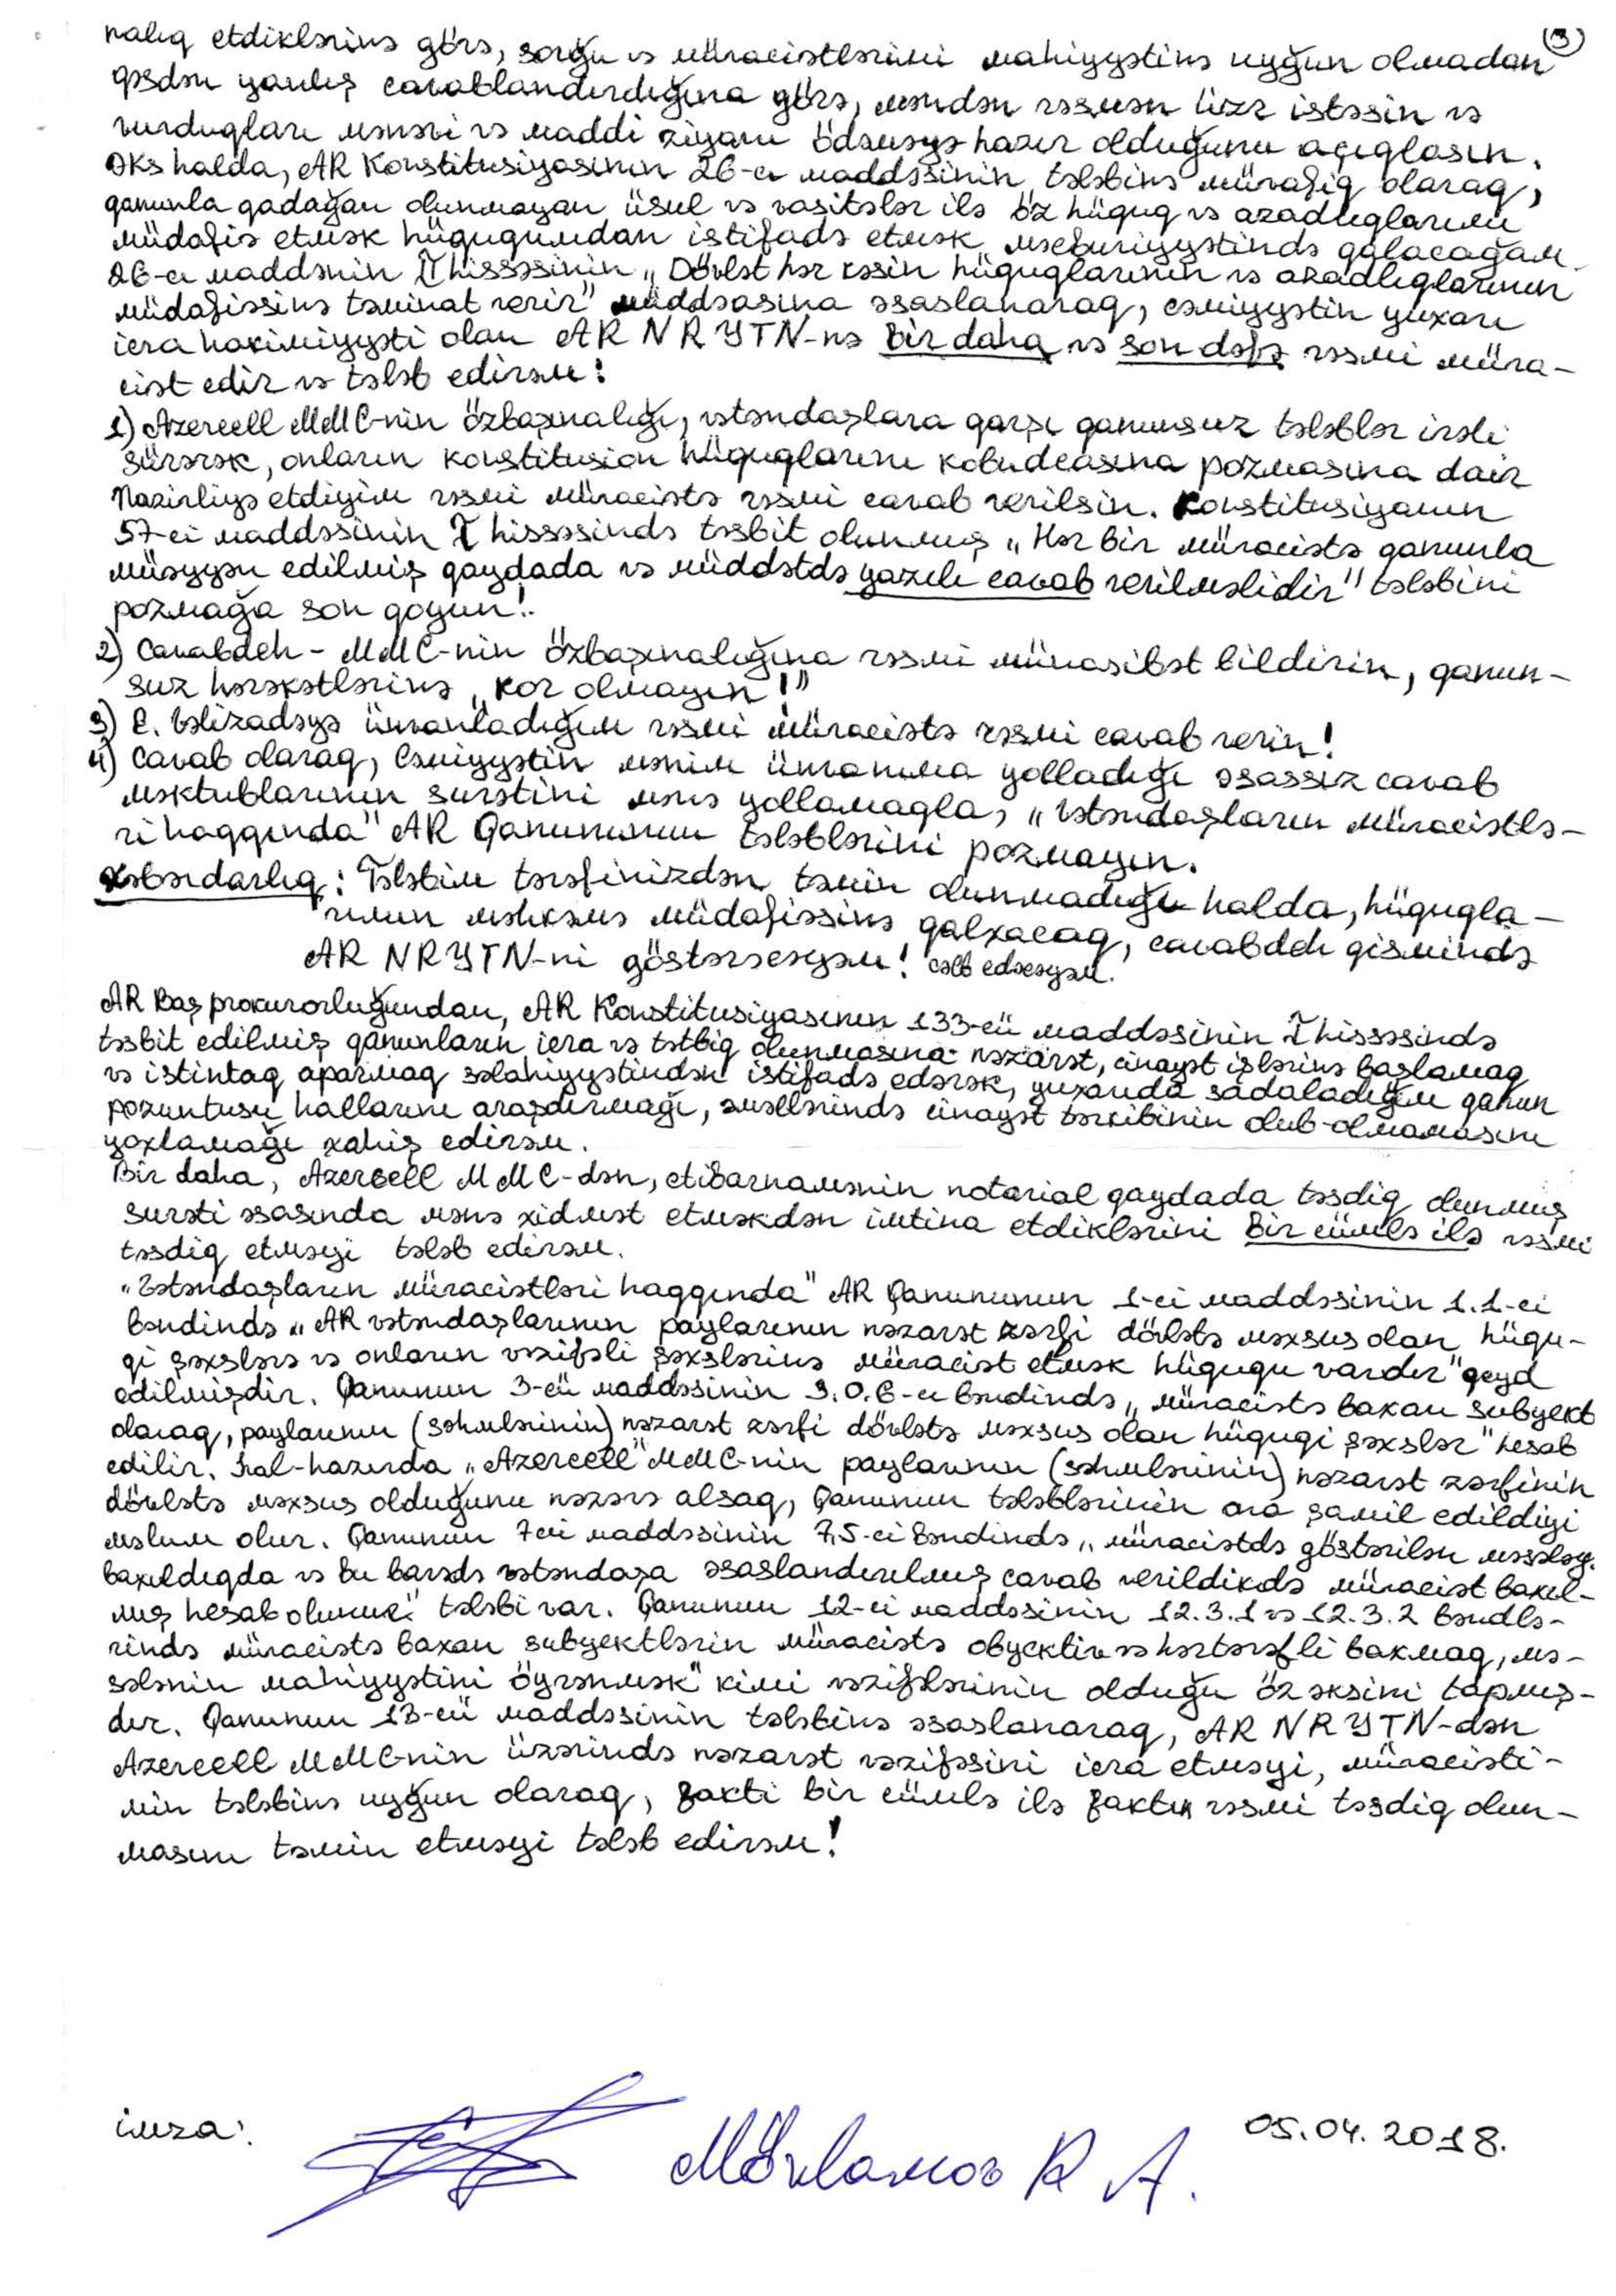 ③
nalıq etdiklərinə görə, sorğu və müraciətlərimi mahiyyətinə uyğun olmadan
qəsdən yanlış cavablandırdığına görə, məndən rəsmən üzr istəsin və
vurduqları mənəvi və maddi ziyanı ödəməyə hazır olduğunu açıqlasın.
Əks halda, AR Konstitusiyasının 26-cı maddəsinin tələbinə müvafiq olaraq,
qanunla qadağan olunmayan üsul və vasitələr ilə öz hüquq və azadlıqlarımı
müdafiə etmək hüququmdan istifadə etmək məcburiyyətində qalacağam.
26-cı maddənin II hissəsinin „Dövlət hər kəsin hüquqlarının və azadlıqlarının
müdafiəsinə təminat verir" müddəasına əsaslanaraq, cəmiyyətin yuxarı
icra hakimiyyəti olan AR NRYTN-nə bir daha və son dəfə rəsmi müra-
ciət edir və tələb edirəm:
1) Azercell MMC-nin özbaşınalığı, vətəndaşlara qarşı qanunsuz tələblər irəli
sürərək, onların konstitusion hüquqlarını kobudcasına pozmasına dair
Nazirliyə etdiyim rəsmi müraciətə rəsmi cavab verilsin. Konstitusiyanın
57-ci maddəsinin I hissəsində təsbit olunmuş „Hər bir müraciətə qanunla
müəyyən edilmiş qaydada və müddətdə yazılı cavab verilməlidir" tələbini
pozmağa son qoyun!.
2) Cavabdeh - MMC-nin özbaşınalığına rəsmi münasibət bildirin, qanun-
suz hərəkətlərinə „kor olmayın!"
3) E. Vəlizadəyə ünvanladığım rəsmi müraciətə rəsmi cavab verin!
4) Cavab olaraq, Cəmiyyətin mənim ünvanıma yolladığı əsassız cavab
məktublarının surətini mənə yollamaqla, „Vətəndaşların müraciətlə-
ri haqqında" AR Qanununun tələblərini pozmayın.
Xəbərdarlıq: Tələbim tərəfinizdən təmin olunmadığı halda, hüquqla-
rımın məhkəmə müdafiəsinə qalxacaq, cavabdeh qismində
AR NRYTN-ni göstərəcəyəm! cəlb edəcəyəm.
AR Baş prokurorluğundan, AR Konstitusiyasının 133-cü maddəsinin I hissəsində
təsbit edilmiş qanunların icra və tətbiq olunmasına nəzarət, cinayət işlərinə başlamaq
və istintaq aparmaq səlahiyyətindən istifadə edərək, yuxarıda sadaladığım qanun
pozuntusu hallarını araşdırmağı, əməllərində cinayət tərkibinin olub-olmamasını
yoxlamağı xahiş edirəm.
Bir daha, Azercell MMC-dən, etibarnamənin notarial qaydada təsdiq olunmuş
surəti əsasında mənə xidmət etməkdən imtina etdiklərini bir cümlə ilə rəsmi
təsdiq etməyi tələb edirəm.
„Vətəndaşların müraciətləri haqqında" AR Qanununun 1-ci maddəsinin 1.1-ci
bəndində „AR vətəndaşlarının paylarının nəzarət zərfi dövlətə məxsus olan hüqu-
qi şəxslərə və onların vəzifəli şəxslərinə müraciət etmək hüququ vardır" qeyd
edilmişdir. Qanunun 3-cü maddəsinin 3.0.6-cı bəndində „müraciətə baxan subyekt
olaraq, paylarının (səhmlərinin) nəzarət zərfi dövlətə məxsus olan hüquqi şəxslər" hesab
edilir. Hal-hazırda „Azercell" MMC-nin paylarının (səhmlərinin) nəzarət zərfinin
dövlətə məxsus olduğunu nəzərə alsaq, Qanunun tələblərinin ona şamil edildiyi
məlum olur. Qanunun 7-ci maddəsinin 7.5-ci bəndində „müraciətdə göstərilən məsələy.
baxıldıqda və bu barədə vətəndaşa əsaslandırılmış cavab verildikdə müraciət baxıl-
mış hesab olunur" tələbi var. Qanunun 12-ci maddəsinin 12.3.1 və 12.3.2 bəndlə-
rində müraciətə baxan subyektlərin müraciətə obyektiv və hərtərəfli baxmaq, mə-
sələnin mahiyyətini öyrənmək" kimi vəzifələrinin olduğu öz əksini tapmış-
dır. Qanunun 13-cü maddəsinin tələbinə əsaslanaraq, AR NRYTN-dən
Azercell MMC-nin üzərində nəzarət vəzifəsini icra etməyi, müraciəti-
min tələbinə uyğun olaraq, faktı bir cümlə ilə faktın rəsmi təsdiq olun-
masını təmin etməyi tələb edirəm!
imza: Mövlamov R A. 05.04.2018.